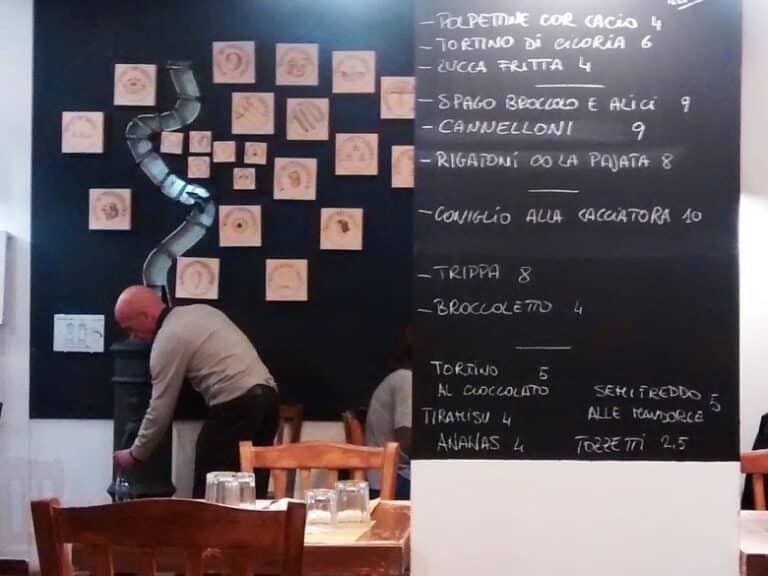 - POLPETTINE COR CACIO 4
- TORTINO DI CICORIA 6
- ZUCCA FRITTA 4
- SPAGO BROCCOLO E ALICI 9
- CANNELLONI 9
- RIGATONI CO LA PAJATA 8
- CONIGLIO ALLA CACCIATORA 10
- TRIPPA 8
- BROCCOLETTO 4
TORTINO 5
AL CIOCCOLATO
TIRAMISU 4
ANANAS 4
SEMIFREDDO 5
ALLE MANDORLE
TOZZETTI 2.5